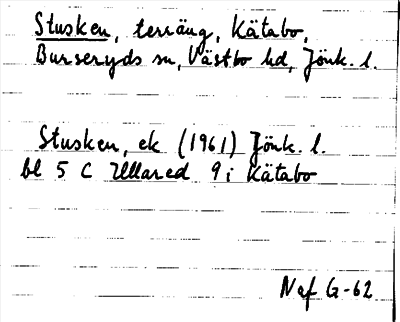 Stusken, terräng, Kätabo,
Burseryds sn, Västbo hd, Jönk. l.
Stusken, ek (1961) Jönk. l.
bl 5 C Ullared 9 i Kätabo
Naf G-62